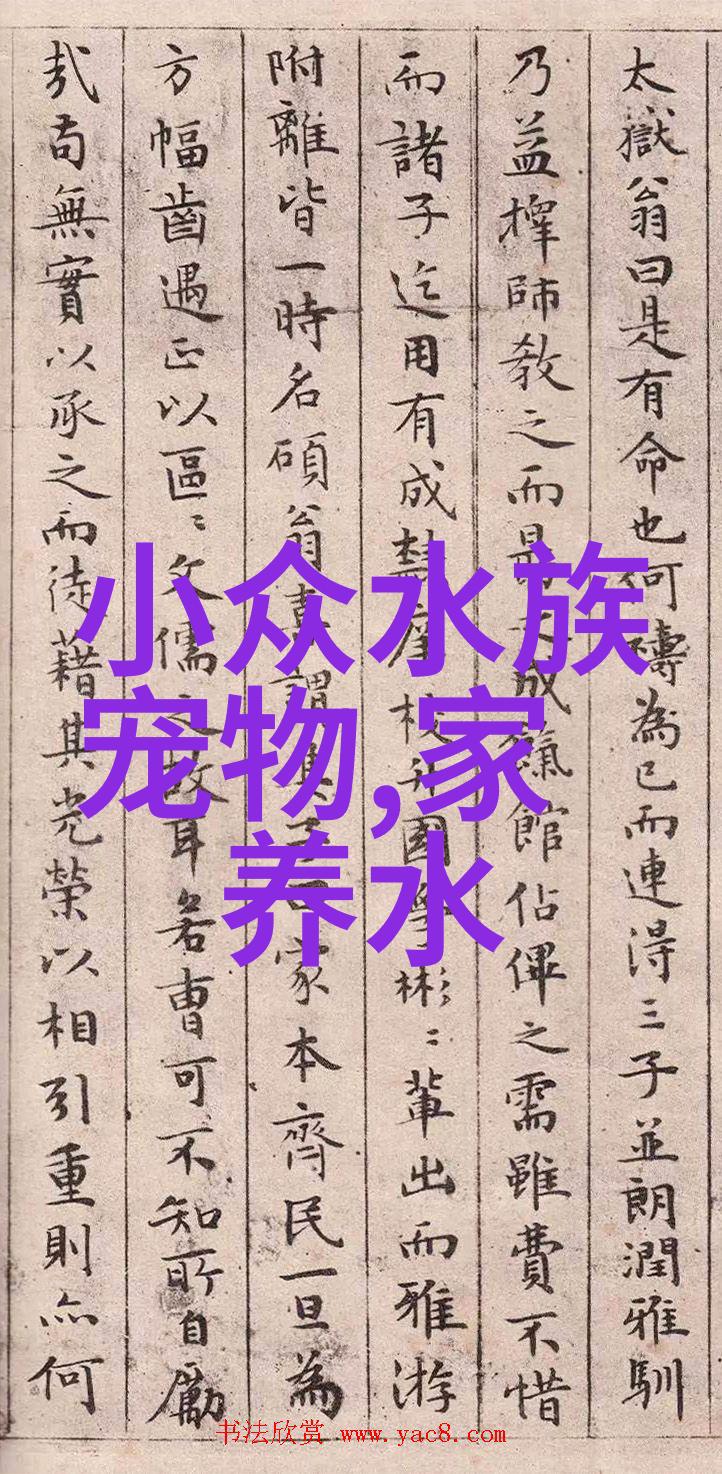 太獄翁曰是有命也何禱為已而連得三子並朗潤雅馴
乃益擇師教之而成餼館佔俾之需雖費不惜
而諸子迄用有成庠校升國學彬〻輩出而雅游
附離皆一時名碩翁喜謂其子曰家本齊民一旦為
方幅齒遇正以區〻文儒之故耳若曹可不知所自勵
哉苟無實以承之而徒藉其光榮以相引重則亦何
小众水族
宠物,家
养水
书法欣赏 www.yac8.com